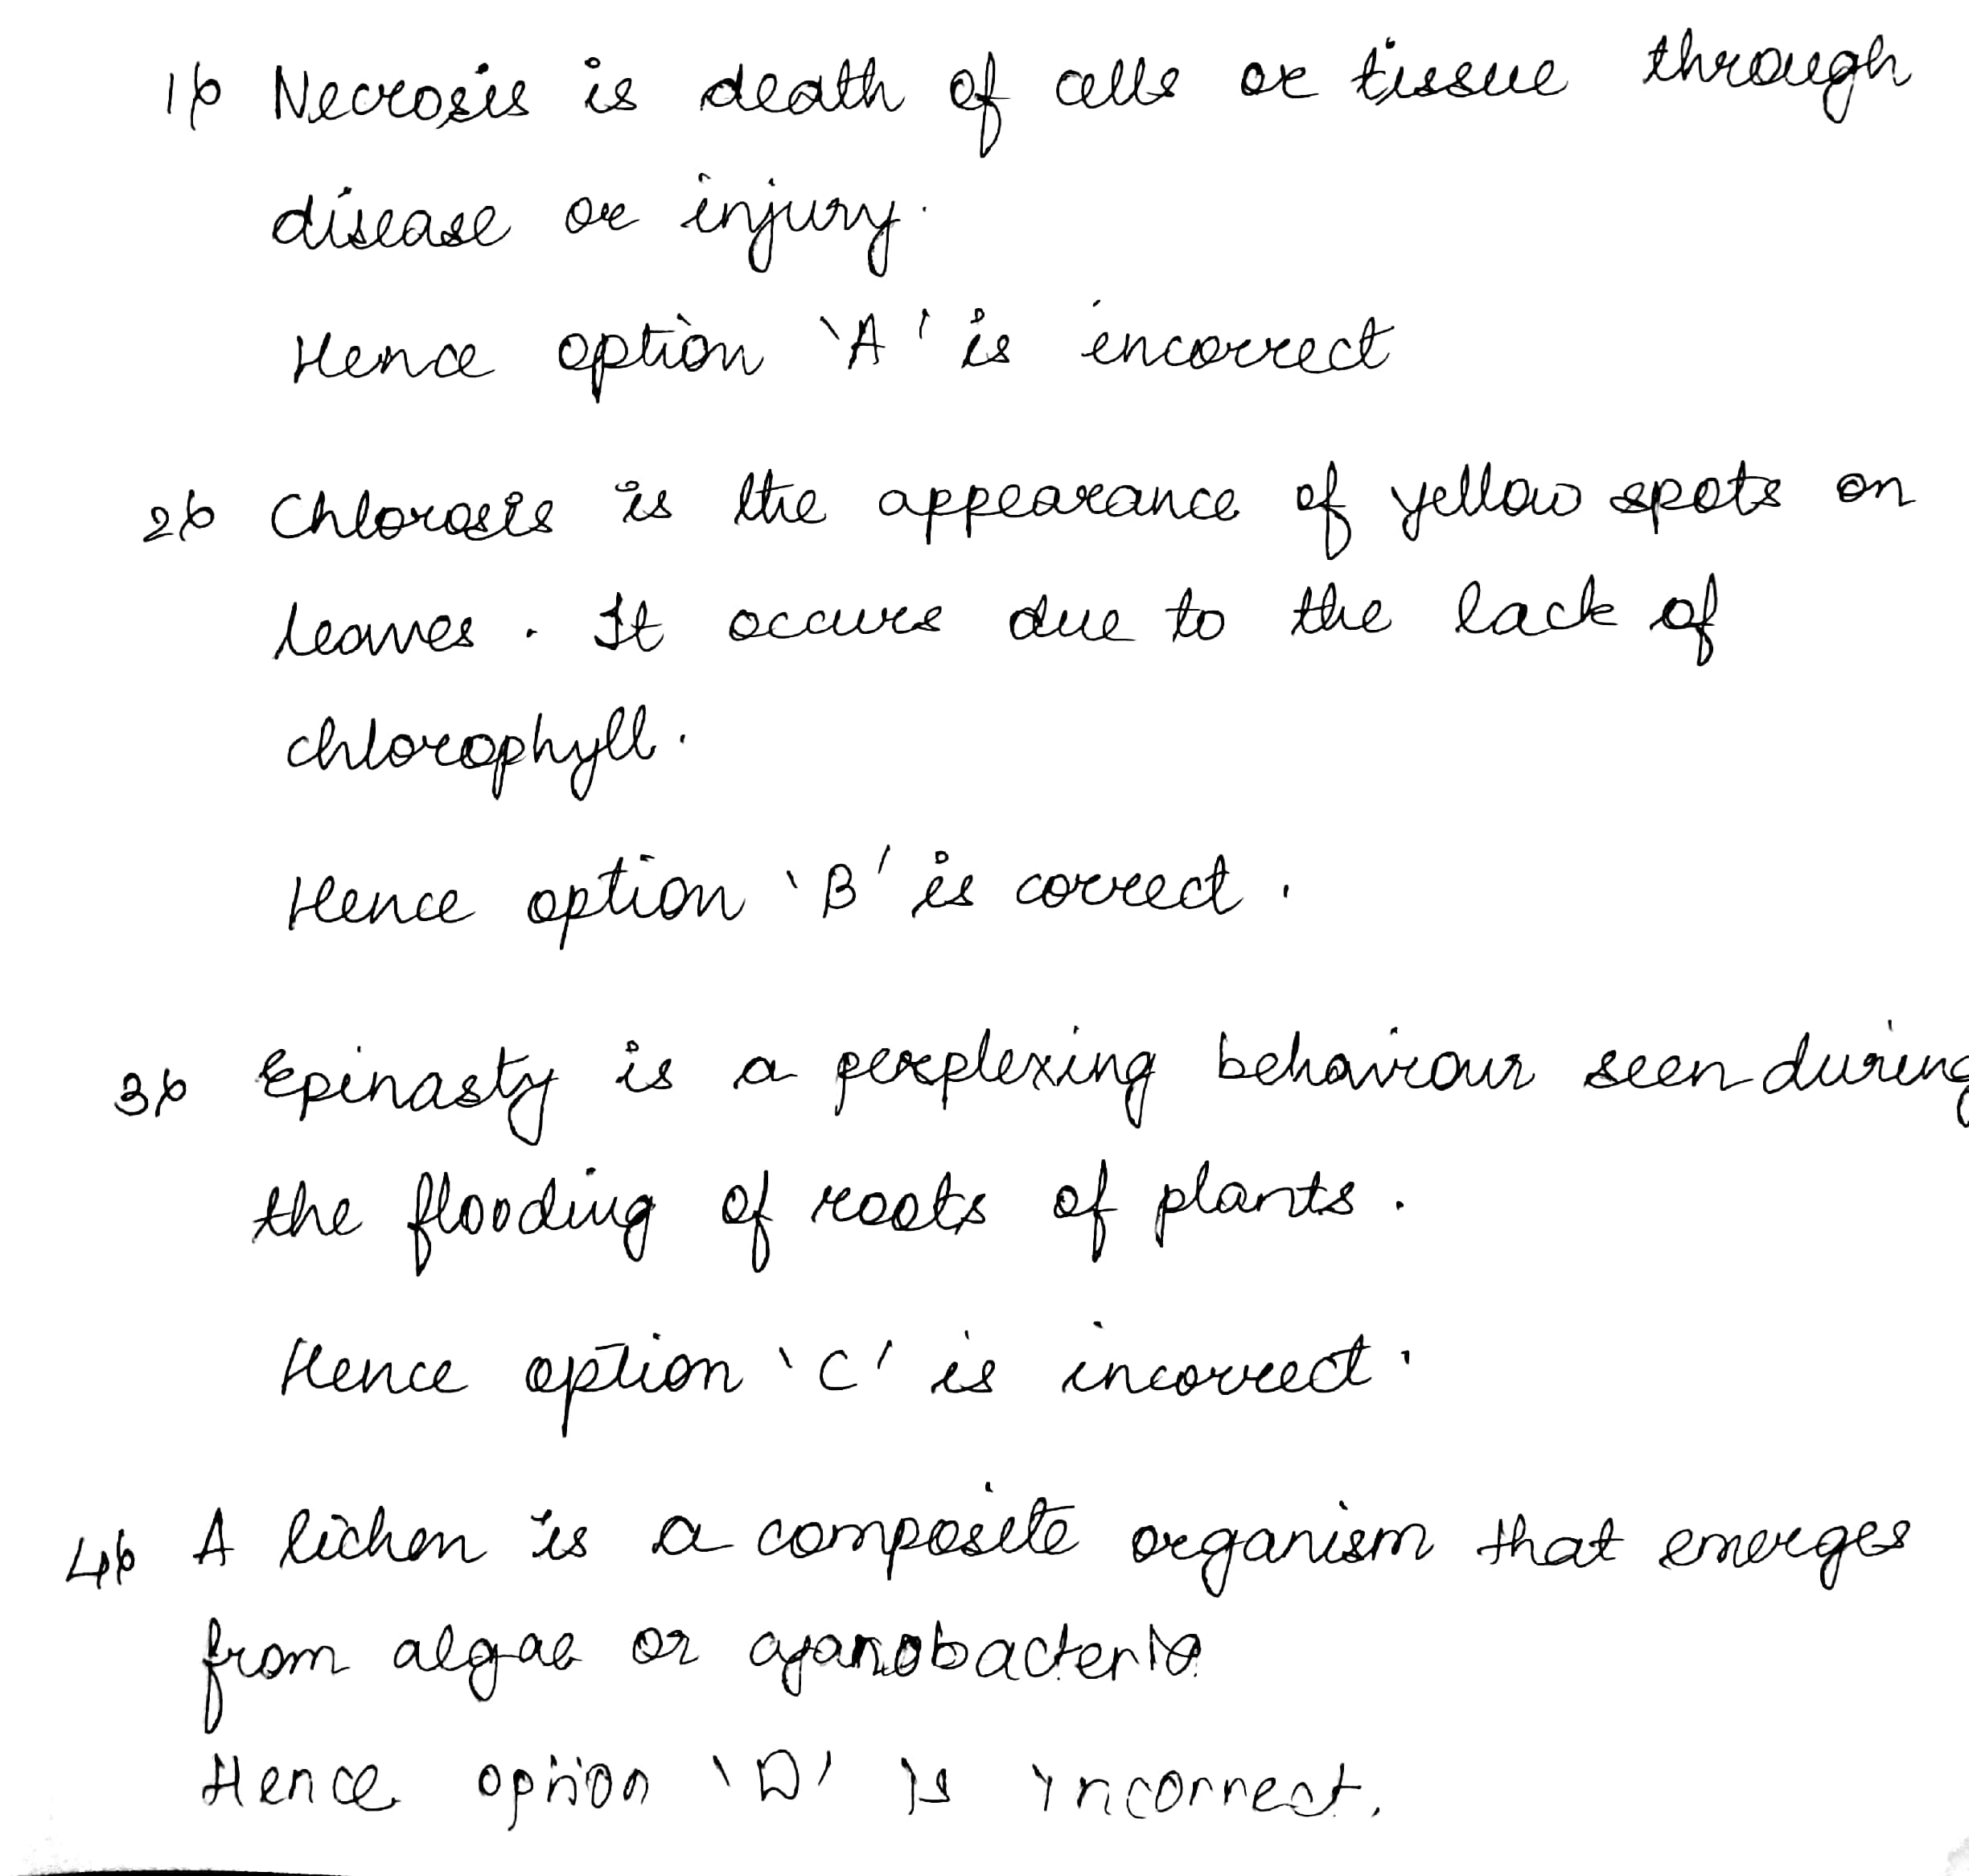 1) Necrosis is death of cells or tissue through
disease or injury.
Hence option 'A' is incorrect
2) Chlorosis is the appearance of yellow spots on
leaves. It occurs due to the lack of
chlorophyll.
Hence option 'B' is correct.
3) Epinasty is a perplexing behaviour seen during
the flooding of roots of plants.
Hence option 'C' is incorrect.
4) A lichen is a composite organism that emerges
from algae or cyanobacteria
Hence option 'D' is incorrect.